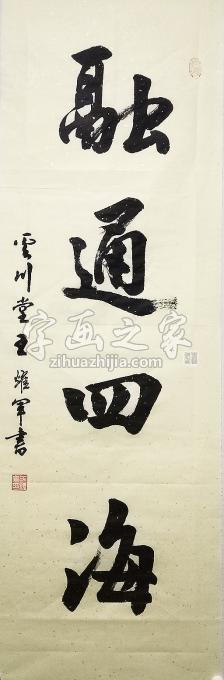 融通四海
雲川堂王維軍書
字画之家
zihuazhijia.com